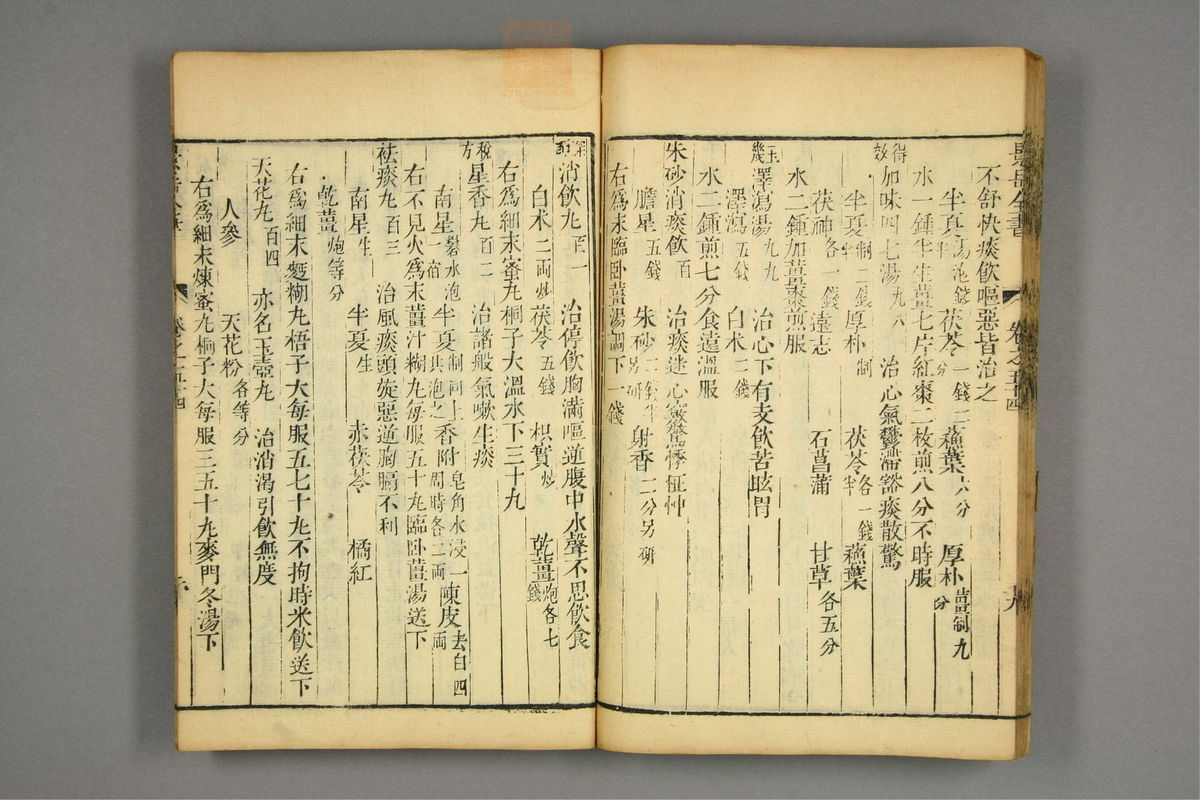 景岳全書 卷之五十四
不舒快痰飲嘔惡皆治之
半夏湯泡錢半 茯苓一錢二分 蘇葉六分 厚朴薑制九分
水一鍾半生薑七片紅棗二枚煎八分不時服
得效加味四七湯九八 治心氣鬱滯豁痰散驚
半夏制二錢半 厚朴制 茯苓各一錢半 蘇葉
茯神各一錢 遠志 石菖蒲 甘草各五分
水二鍾加薑棗煎服
玉幾澤瀉湯九九 治心下有支飲苦眩冒
澤瀉五錢 白朮二錢
水二鍾煎七分食遠溫服
朱砂消痰飲百 治痰迷心竅驚悸怔忡
膽星五錢 朱砂二錢半另研 射香二分另研
右爲末臨臥薑湯調下一錢
消飲丸百一 治停飲胸滿嘔逆腹中水聲不思飲食
白朮二兩炒 茯苓五錢 枳實炒 乾薑炮各七錢
右爲細末蜜丸桐子大溫水下三十丸
稅方星香丸百二 治諸般氣嗽生痰
南星 半夏制同上共泡之 香附皂角水浸一周時各二兩 陳皮去白四兩
右不見火爲末薑汁糊丸每服五十丸臨臥薑湯送下
祛痰丸百三 治風痰頭旋惡逆胸膈不利
南星生 半夏生 赤茯苓 橘紅
乾薑炮等分
右爲細末麪糊丸梧子大每服五七十丸不拘時米飲送下
天花丸百四 亦名玉壺丸 治消渴引飲無度
人參 天花粉各等分
右爲細末煉蜜丸桐子大每服三五十丸麥門冬湯下